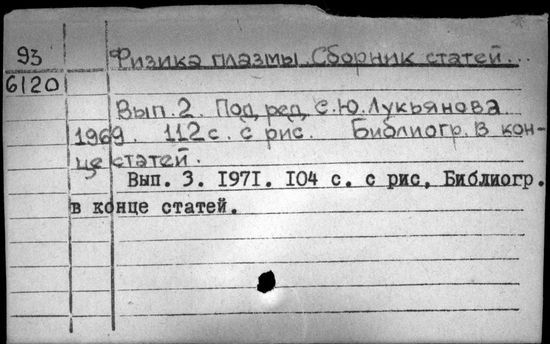 93 Физика плазмы. Сборник статей...
6120
Вып. 2. Под ред. С.Ю. Лукьянова
1969. 112 с. с рис. Библиогр. в кон-
це статей.
Вып. 3. 1971. 104 с. с рис, Библиогр.
в конце статей.